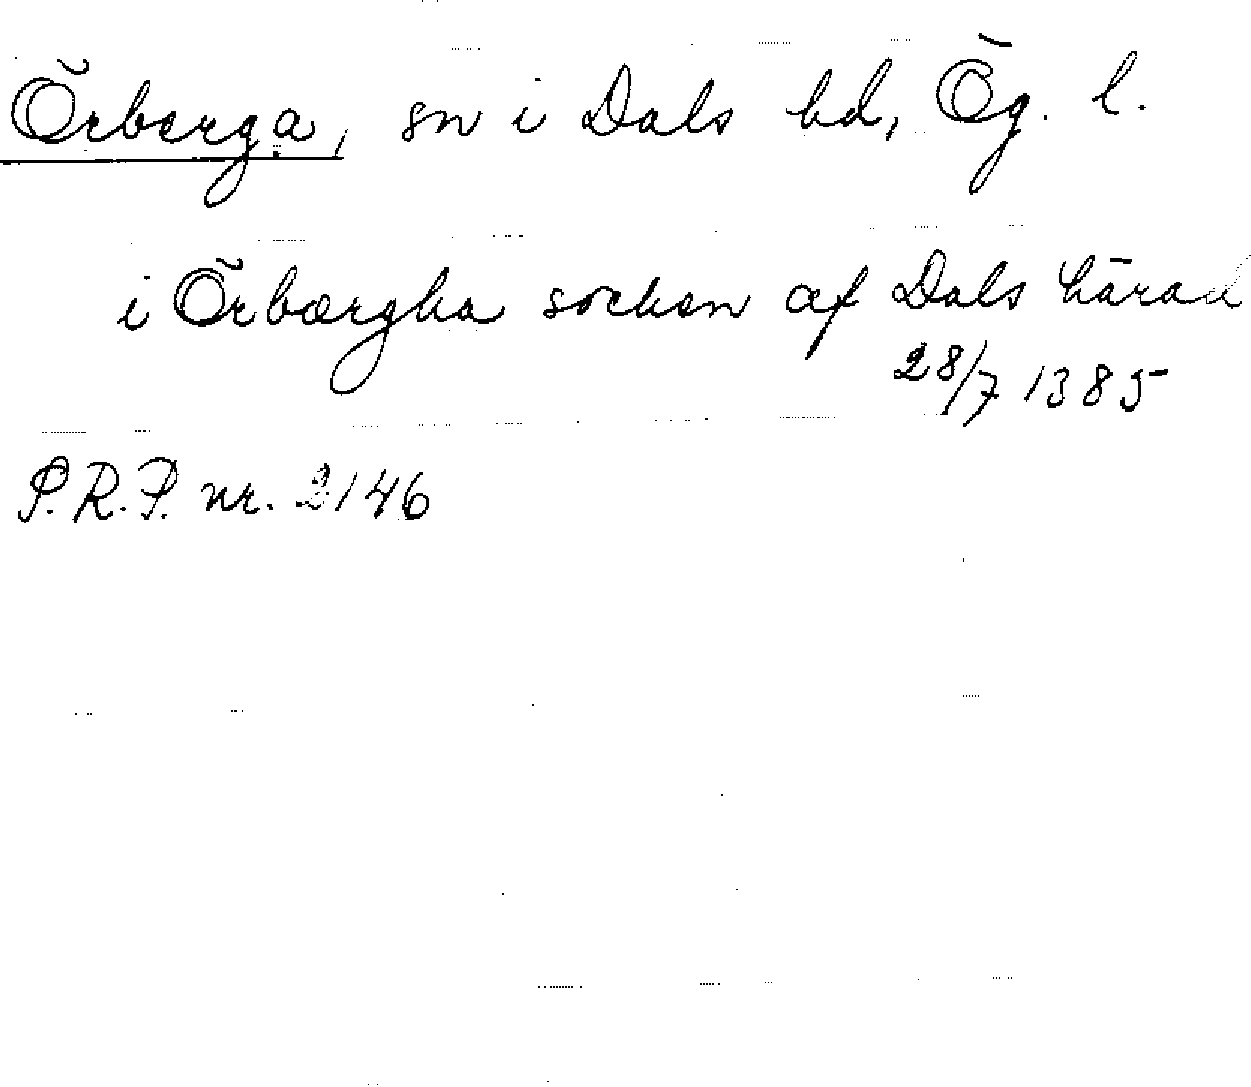 Örberga, sn i Dals hd, Ög. l.
i Örbærgha socken af Dals härad
28/7 1385
S.R.P. nr. 2146